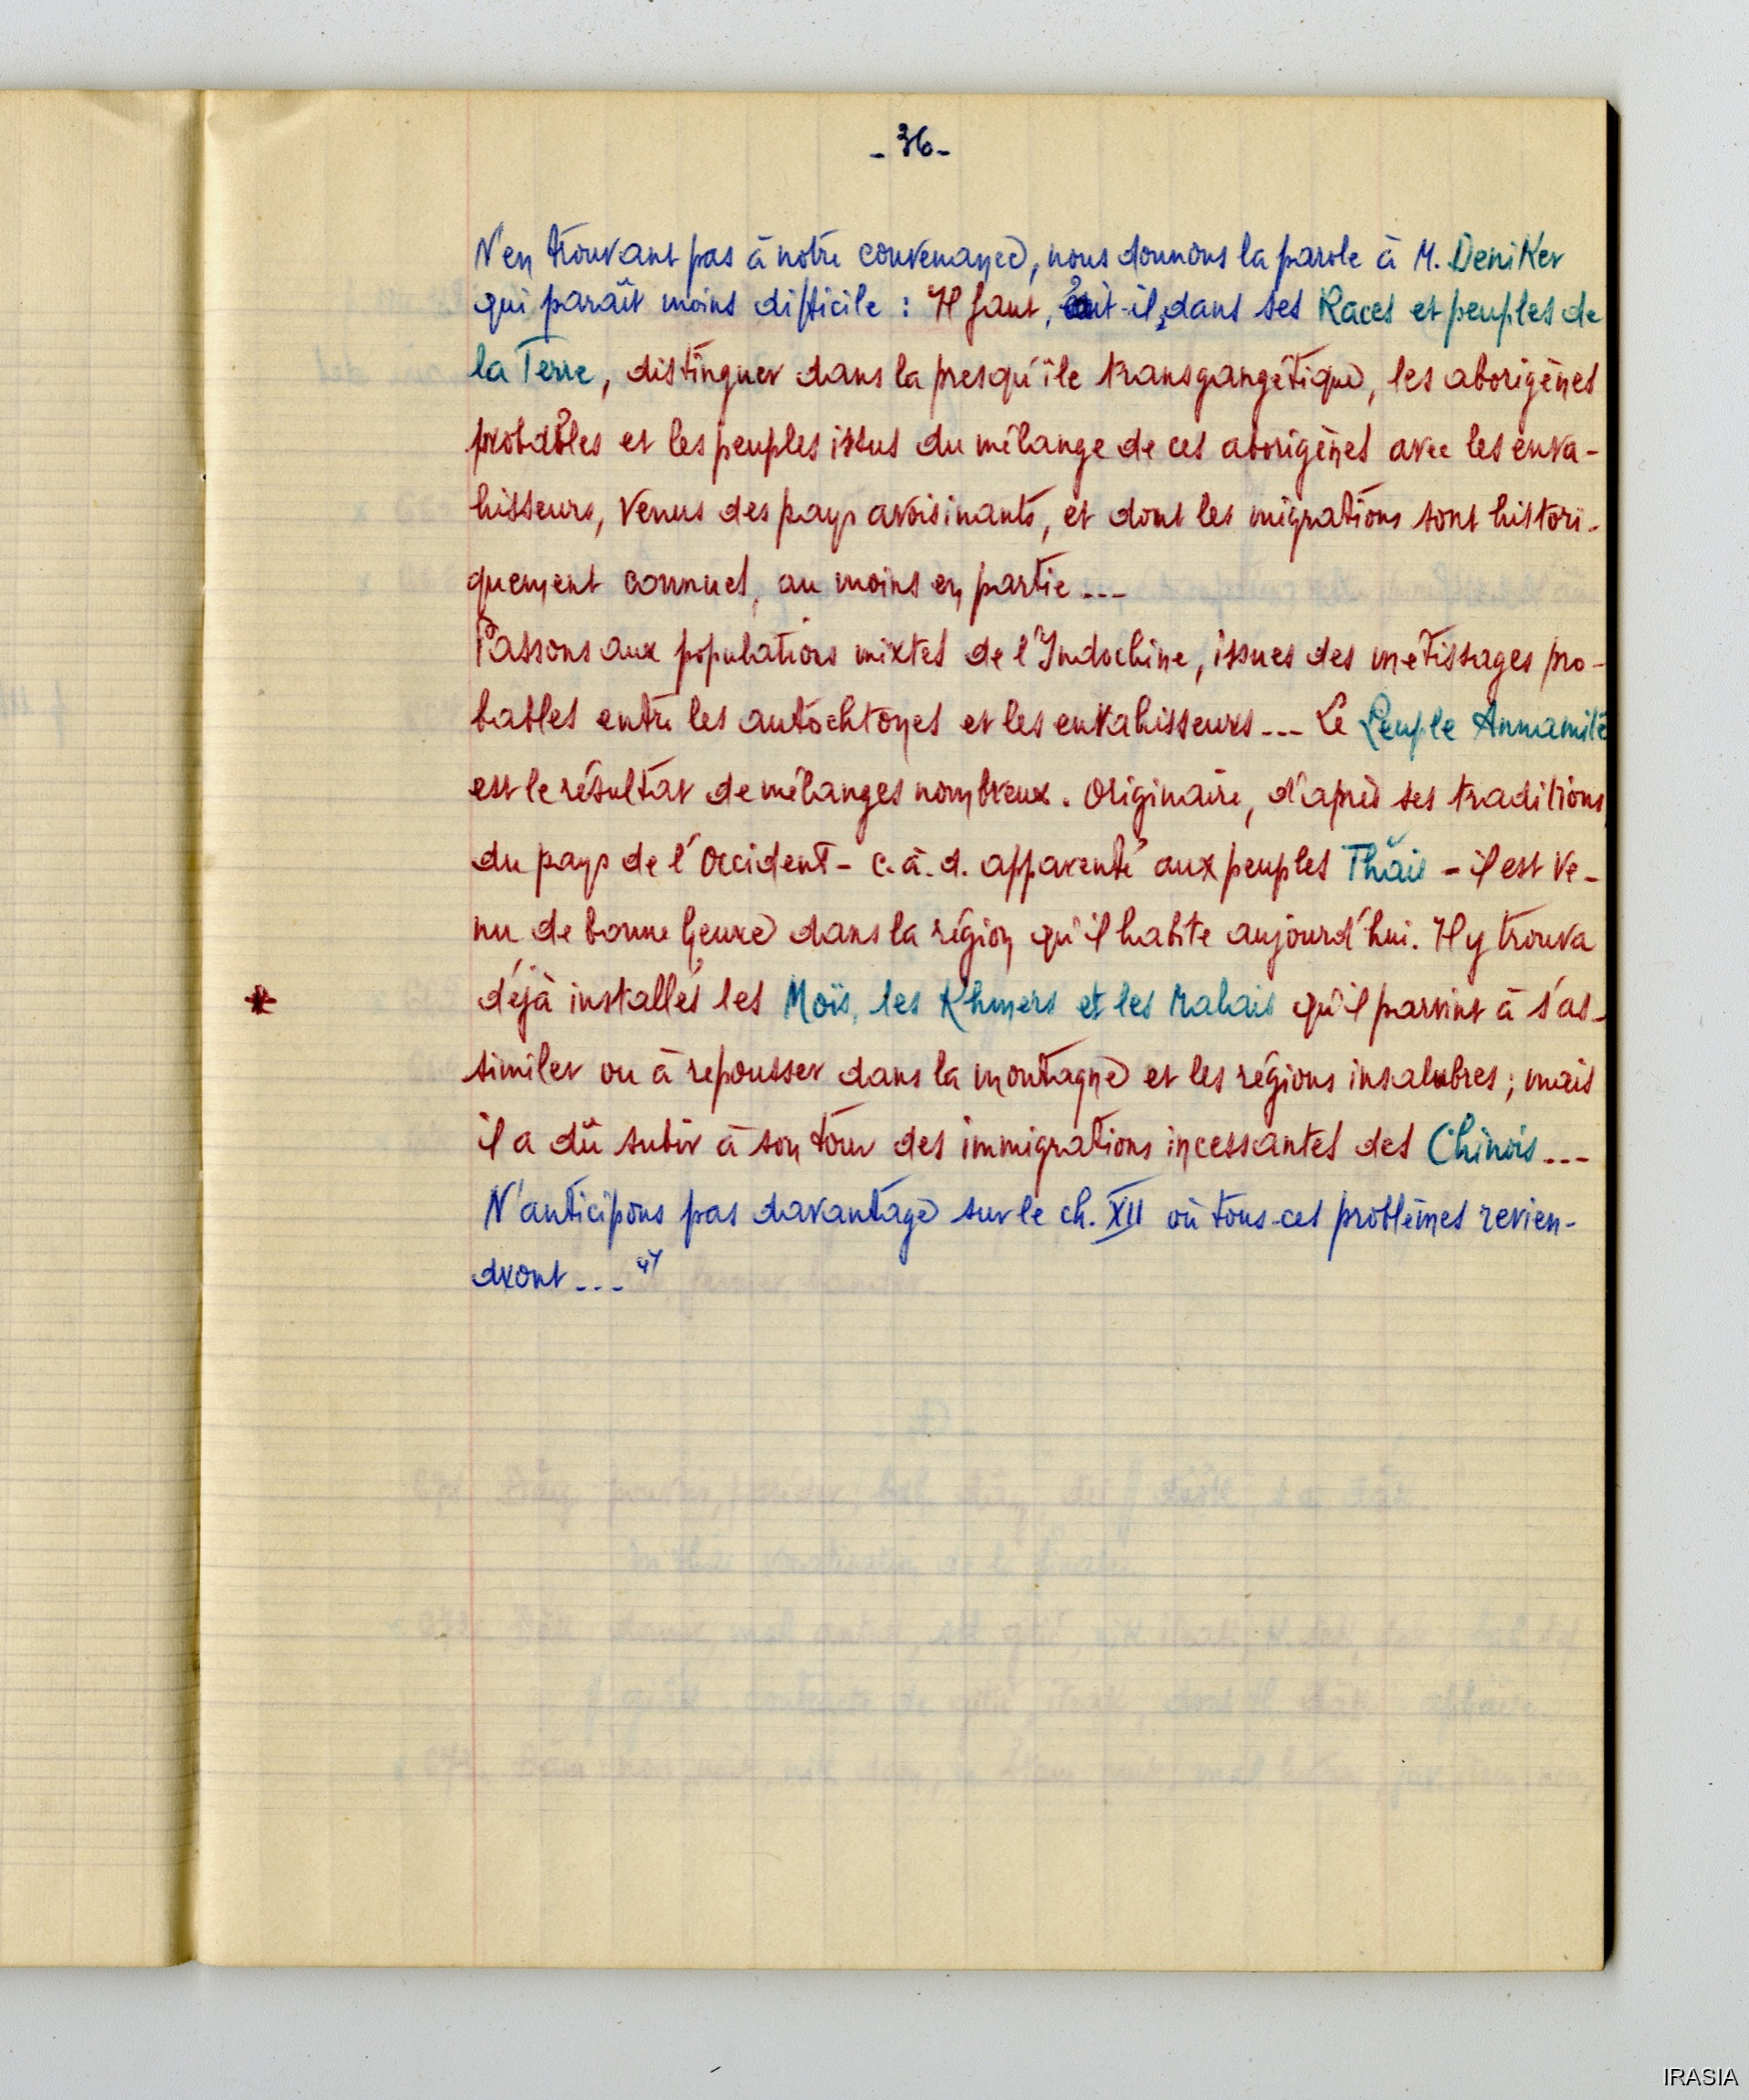 - 36 -
N'en trouvant pas à notre convenance, nous donnons la parole à M. Deniker
qui paraît moins difficile : "Il faut, écrit-il, dans ses Races et peuples de
la Terre, distinguer dans la presqu'île transgangétique, les aborigènes
probables et les peuples issus du mélange de ces aborigènes avec les enva-
hisseurs, venus des pays avoisinants, et dont les migrations sont histori-
quement connues, au moins en partie ...
Passons aux populations mixtes de l'Indochine, issues des métissages pro-
bables entre les autochtones et les envahisseurs ... Le Peuple Annamite
est le résultat de mélanges nombreux. Originaire, d'après ses traditions,
du pays de l'Occident - c.à.d. apparenté aux peuples Thäis - il est ve-
nu de bonne heure dans la région qu'il habite aujourd'hui. Il y trouva
* déjà installés les Moïs, les Khmers et les Malais qu'il parvint à s'as-
similer ou à repousser dans la montagne et les régions insalubres ; mais
il a dû subir à son tour des immigrations incessantes des Chinois ...
N'anticipons pas davantage sur le ch. XII où tous-ces problèmes revien-
dront ... "
IRASIA